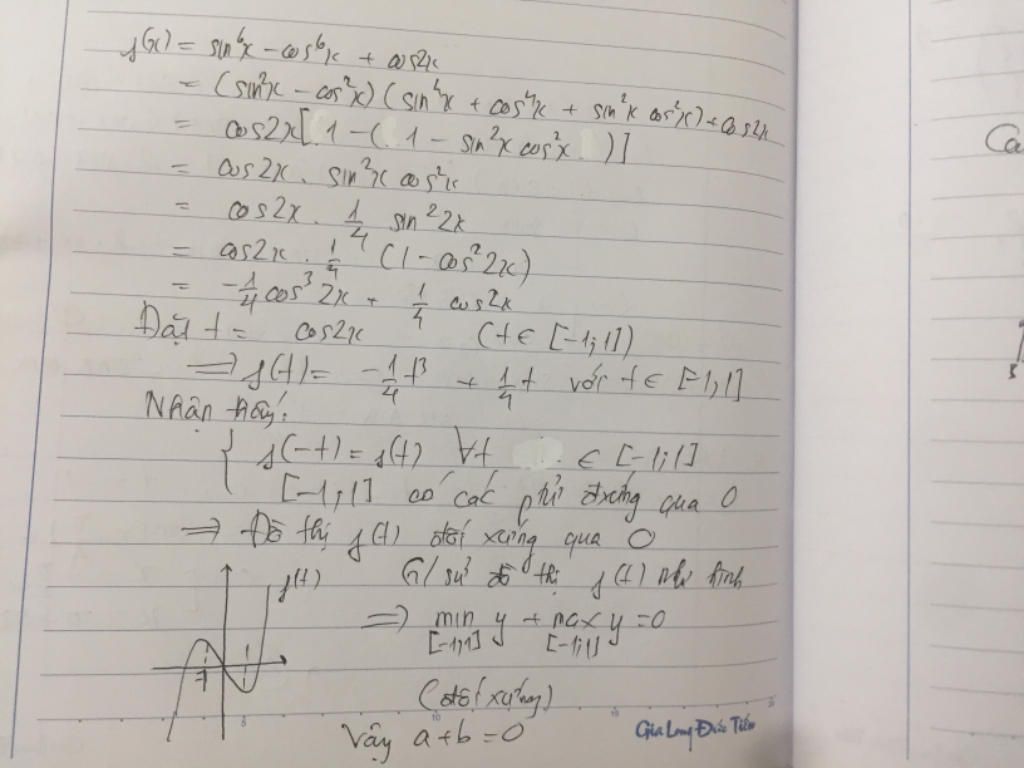 f(x) = sin⁶x - cos⁶x + cos2x
= (sin²x - cos²x)(sin⁴x + cos⁴x + sin²x cos²x) + cos2x
= cos2x[1 - (1 - sin²x cos²x)]
= cos2x . sin²x cos²x
= cos2x . 1/4 sin²2x
= cos2x . 1/4 (1 - cos²2x)
= -1/4 cos³2x + 1/4 cos2x
Đặt t = cos2x (t ∈ [-1;1])
⇒ f(t) = -1/4 t³ + 1/4 t với t ∈ [-1;1]
Nhận thấy:
{ f(-t) = f(t) ∀t ∈ [-1;1]
[-1;1] có các ptử đxứng qua 0
⇒ Đồ thị f(t) đối xứng qua O
f(t) G/sử đồ thị f(t) như hình
⇒ min y + max y = 0
[-1;1] [-1;1]
-1 1
(đối xứng)
Vậy a + b = 0
5 10 15
Gia Long Đức Tiến
Câ